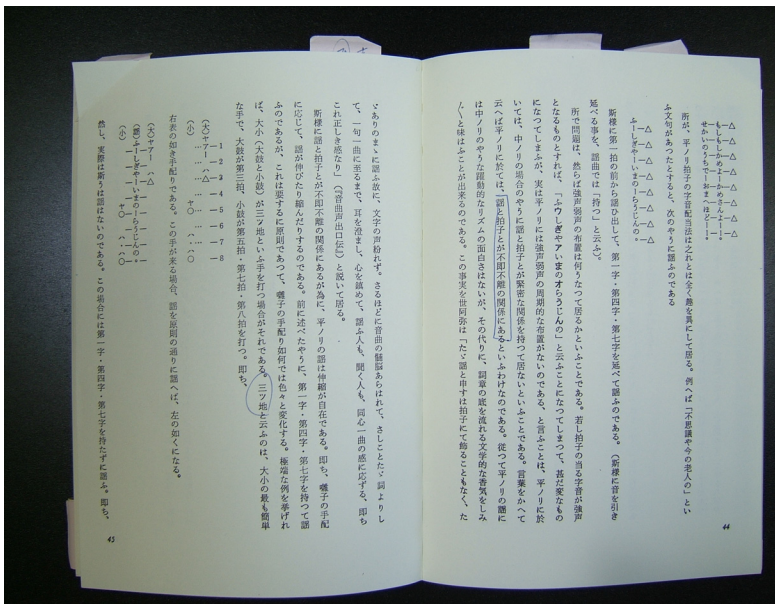 もしもしかめよーかめさんよーー。
せかいのうちでーおまへほどーー。
所が、平ノリ拍子の字音配当法は之れとは全く趣を異にして居る。例へば「不思議や今の老人の」とい
ふ文句があつたとすると、次のやうに謡ふのである
ふーしぎやーいまのーらうじんの。
斯様に第一拍の前から謡ひ出して、第一字・第四字・第七字を延べて謡ふのである。（斯様に音を引き
延べる事を、謡曲では「持つ」と云ふ）。
所で問題は、然らば強声弱声の布置は何うなつて居るかといふことである。若し拍子の当る字音が強声
となるものとすれば、「ふウしぎやアいまのオらうじんの」と云ふことになつてしまつて、甚だ変なもの
になつてしまふが、実は平ノリには強声弱声の周期的な布置がないのである、と言ふことは、平ノリに於
いては、中ノリの場合のやうに謡と拍子とが緊密な関係を持つて居ないといふことである。言葉をかへて
云へば平ノリに於ては、謡と拍子とが不即不離の関係にあるといふわけなのである。従つて平ノリの謡に
は中ノリのやうな躍動的なリズムの面白さはないが、その代りに、詞章の底を流れる文学的な香気をしみ
〴〵と味はふことが出来るのである。この事実を世阿弥は「たゞ謡と申すは拍子にて飾ることもなく、た
44
ゞありのまゝに謡ふ故に、文字の声紛れず。さるほどに音曲の髄脳あらはれて、さしことたゞ詞よりし
て、一句一曲に至るまで、耳を澄まし、心を鎮めて、謡ふ人も、聞く人も、同心一曲の感に応ずる、即ち
これ正しき感なり」（『音曲声出口伝』）と説いて居る。
斯様に謡と拍子とが不即不離の関係にあるが為に、平ノリの謡は伸縮が自在である。即ち、囃子の手配
に応じて、謡が伸びたり縮んだりするのである。前に述べたやうに、第一字・第四字・第七字を持つて謡
ふのであるが、これは要するに原則であつて、囃子の手配り如何では色々と変化する。極端な例を挙げれ
ば、大小（大鼓と小鼓）が三ツ地といふ手を打つ場合がそれである。三ツ地と云ふのは、大小の最も簡単
な手で、大鼓が第三拍、小鼓が第五拍・第七拍・第八拍を打つ。即ち、
1 2 3 4 5 6 7 8
（大）ヤアー （△
（小） ヤ〇 （・（〇
右表の如き手配りである。この手が来る場合、謡を原則の通りに謡へば、左の如くになる。
（大）ヤアー （△
（謡）ふーしぎやーいまのーらうじんの。
（小） ヤ〇 （・（〇
然し、実際は斯うは謡はないのである。この場合には第一字・第四字・第七字を持たずに謡ふ。即ち、
45